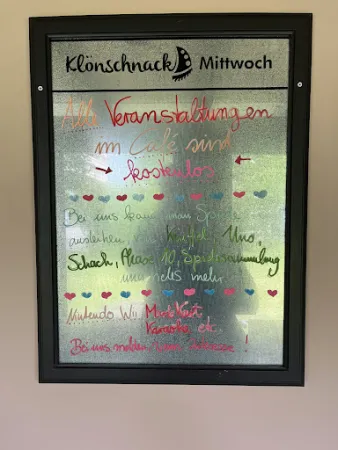 Klönschnack Mittwoch
Alle Veranstaltungen
im Café sind
kostenlos
Bei uns kann man Spiele
ausleihen, Kniffel, Uno,
Schach, Phase 10, Spielesammlung
und vieles mehr
Nintendo Wii Mario Kart
Karaoke etc.
Bei uns melden !